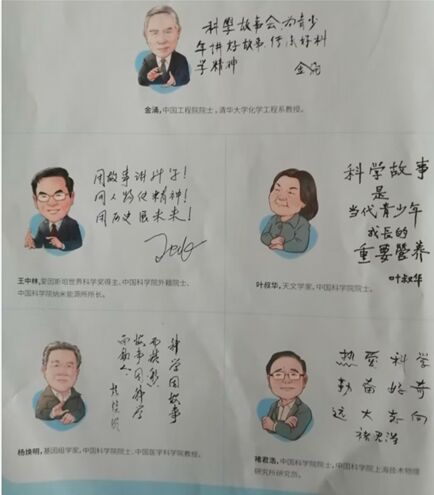 科學故事会为青少
年讲好故事传承好科
学精神
金涌
金涌,中国工程院院士,清华大学化学工程系教授。
用故事讲科学!
用人物促精神!
用历史展未来!
王中林,爱因斯坦世界科学奖得主、中国科学院外籍院士、
中国科学院纳米能源所所长。
科学故事
是
当代青少年
成长的
重要营养
叶叔华
叶叔华,天文学家,中国科学院院士。
科学因故事
而
故事因科学
而
杨焕明
杨焕明,基因组学家,中国科学院院士,中国医学科学院教授。
热爱科学
勤奋好奇
远大志向
褚君浩
褚君浩,中国科学院院士,中国科学院上海技术物理
研究所研究员。